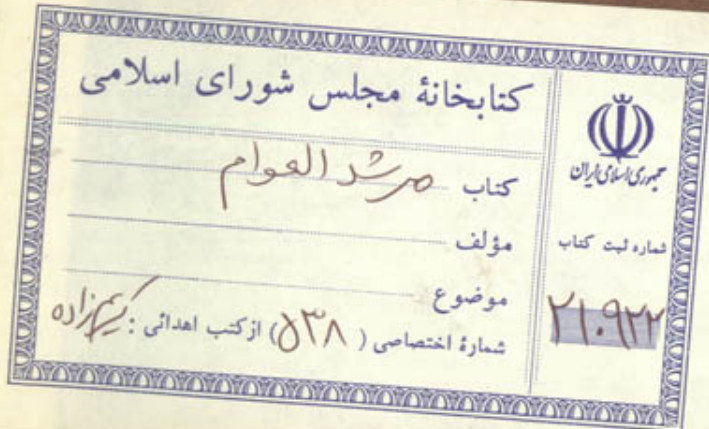 کتابخانهٔ مجلس شورای اسلامی
کتاب مرشد العوام
مؤلف
موضوع
شمارهٔ اختصاصی ( ۵۳۸ ) از کتب اهدائی : کریمزاده
جمهوری اسلامی ایران
شماره ثبت کتاب
۲۱۰۹۲۲